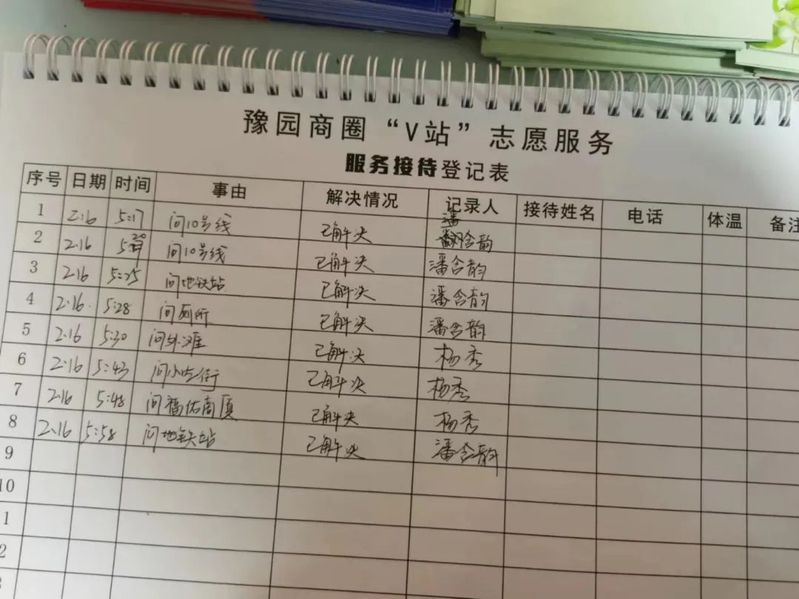 豫园商圈“V站”志愿服务
服务接待登记表
序号 日期 时间 事由 解决情况 记录人 接待姓名 电话 体温 备注
1 2.16 5:17 问10号线 已解决 潘含韵
2 2.16 5:20 问10号线 已解决 潘含韵
3 2.16 5:25 问地铁站 已解决 潘含韵
4 2.16. 5:28 问厕所 已解决 潘含韵
5 2.16 5:30 问外滩 已解决 杨秀
6 2.16 5:43 问小吃街 已解决 杨秀
7 2.16 5:48 问福佑商厦 已解决 杨秀
8 2.16 5:58 问地铁站 已解决 潘含韵
9
10
1
2
3